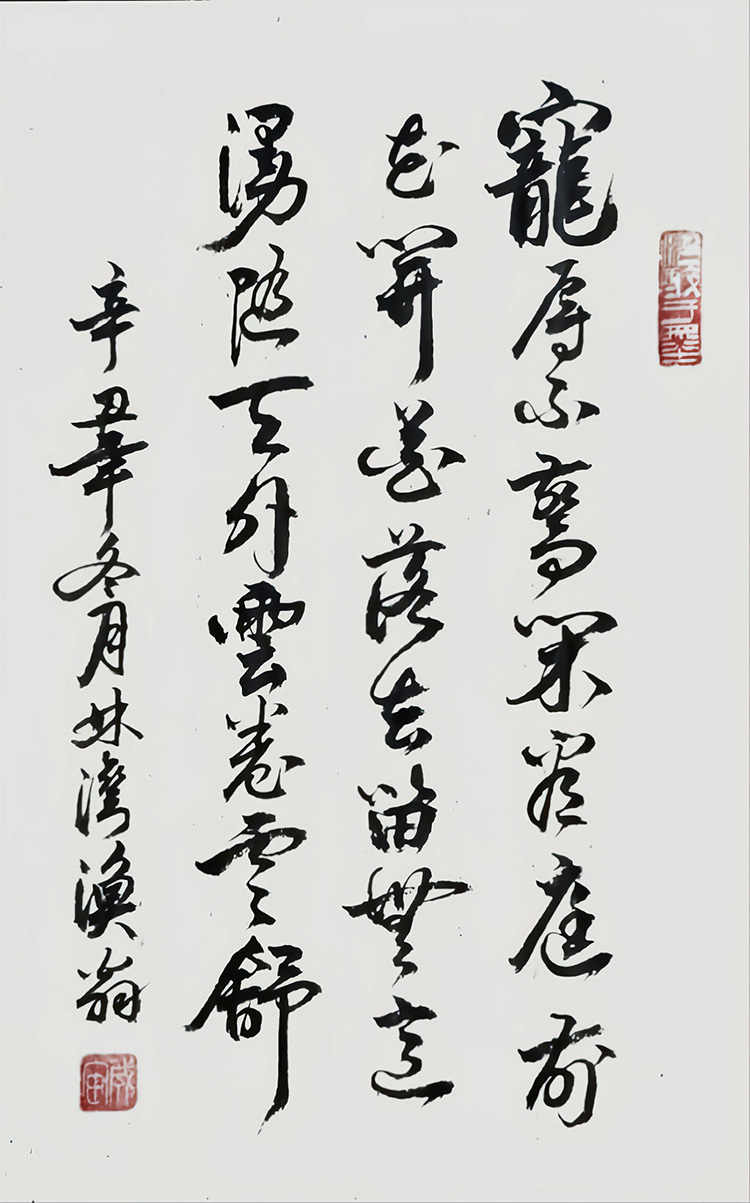 寵辱不驚閑看庭前
花開花落去留無意
漫隨天外雲卷雲舒
辛丑年冬月灣漁翁